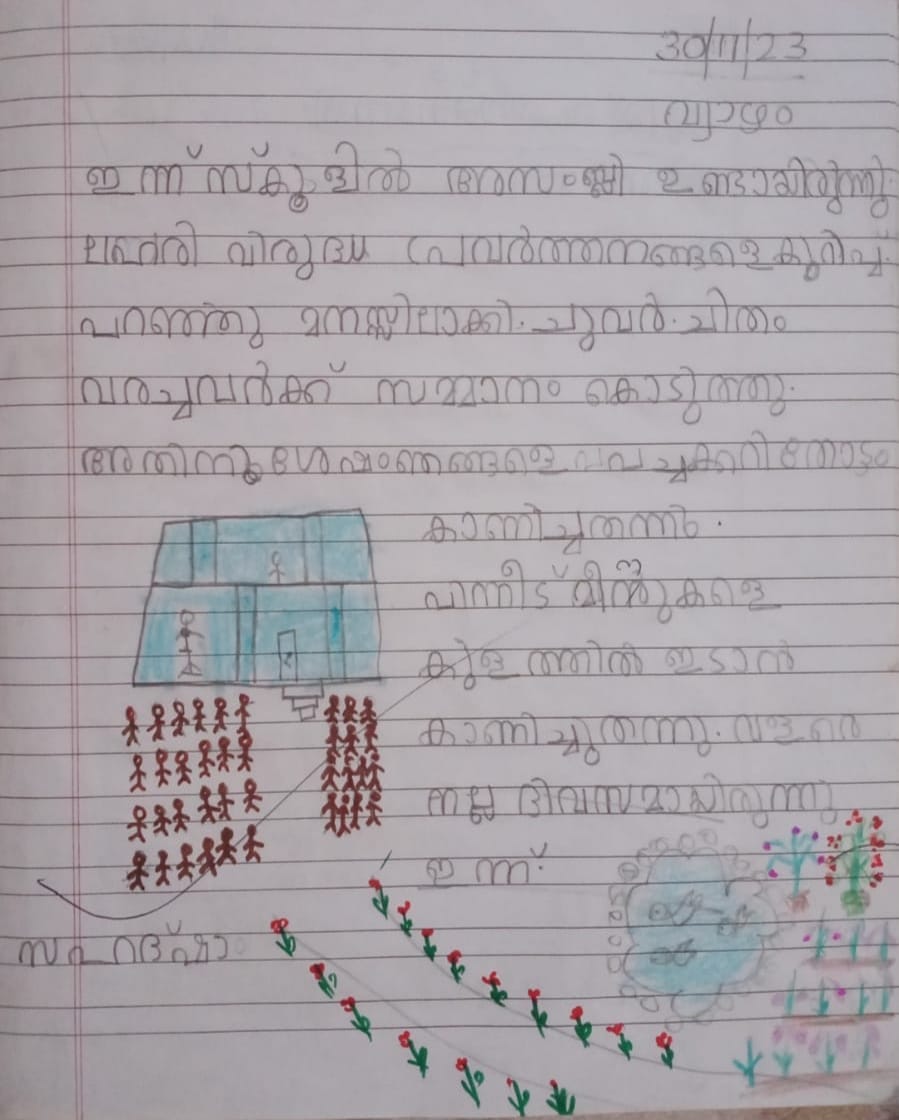 30/11/23
വ്യാഴം
ഇന്ന് സ്കൂളിൽ അസംബ്ലി ഉണ്ടായിരുന്നു
ലഹരി വിരുദ്ധ പ്രവർത്തനങ്ങളെകുറിച്ച്
പറഞ്ഞു മനസ്സിലാക്കി. ചുവർ.ചിത്രം
വരച്ചവർക്ക് സമ്മാനം കൊടുത്തു.
അതിനുശേഷംഞങ്ങളെ പച്ചക്കറിതോട്ടം
കാണിച്ചുതന്നു.
പിന്നീട് മീനുകളെ
കുളത്തിൽ ഇടാൻ
കാണിച്ചുതന്നു. വളരെ
നല്ല ദിവസമായിരുന്നു
ഇന്ന്.